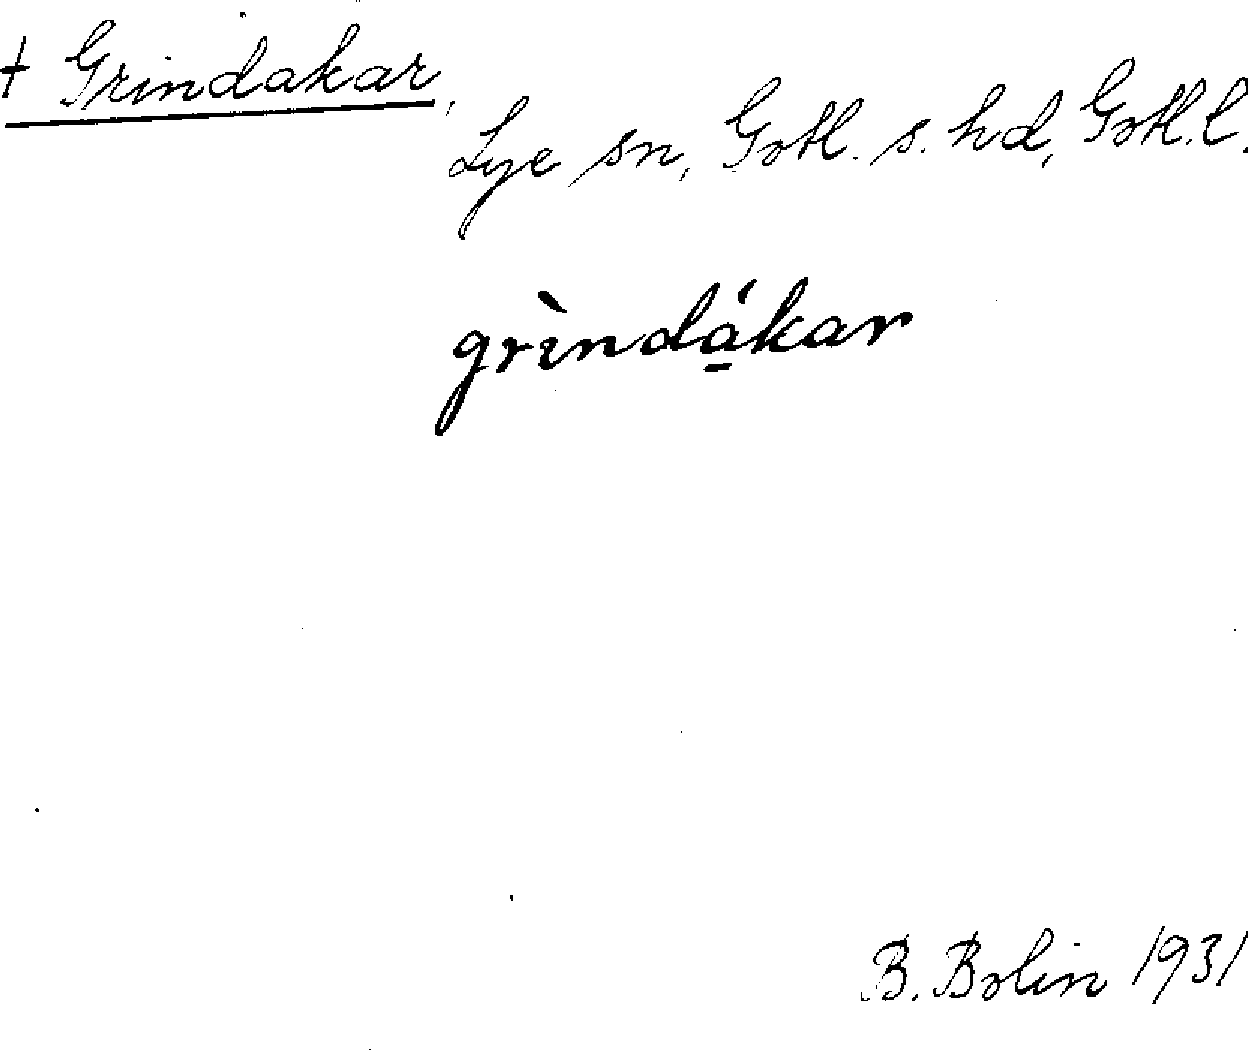 † Grindakar,
Lye sn, Gotl. s. hd, Gotl. l.
grìndá̱kar
B. Bolin 1931